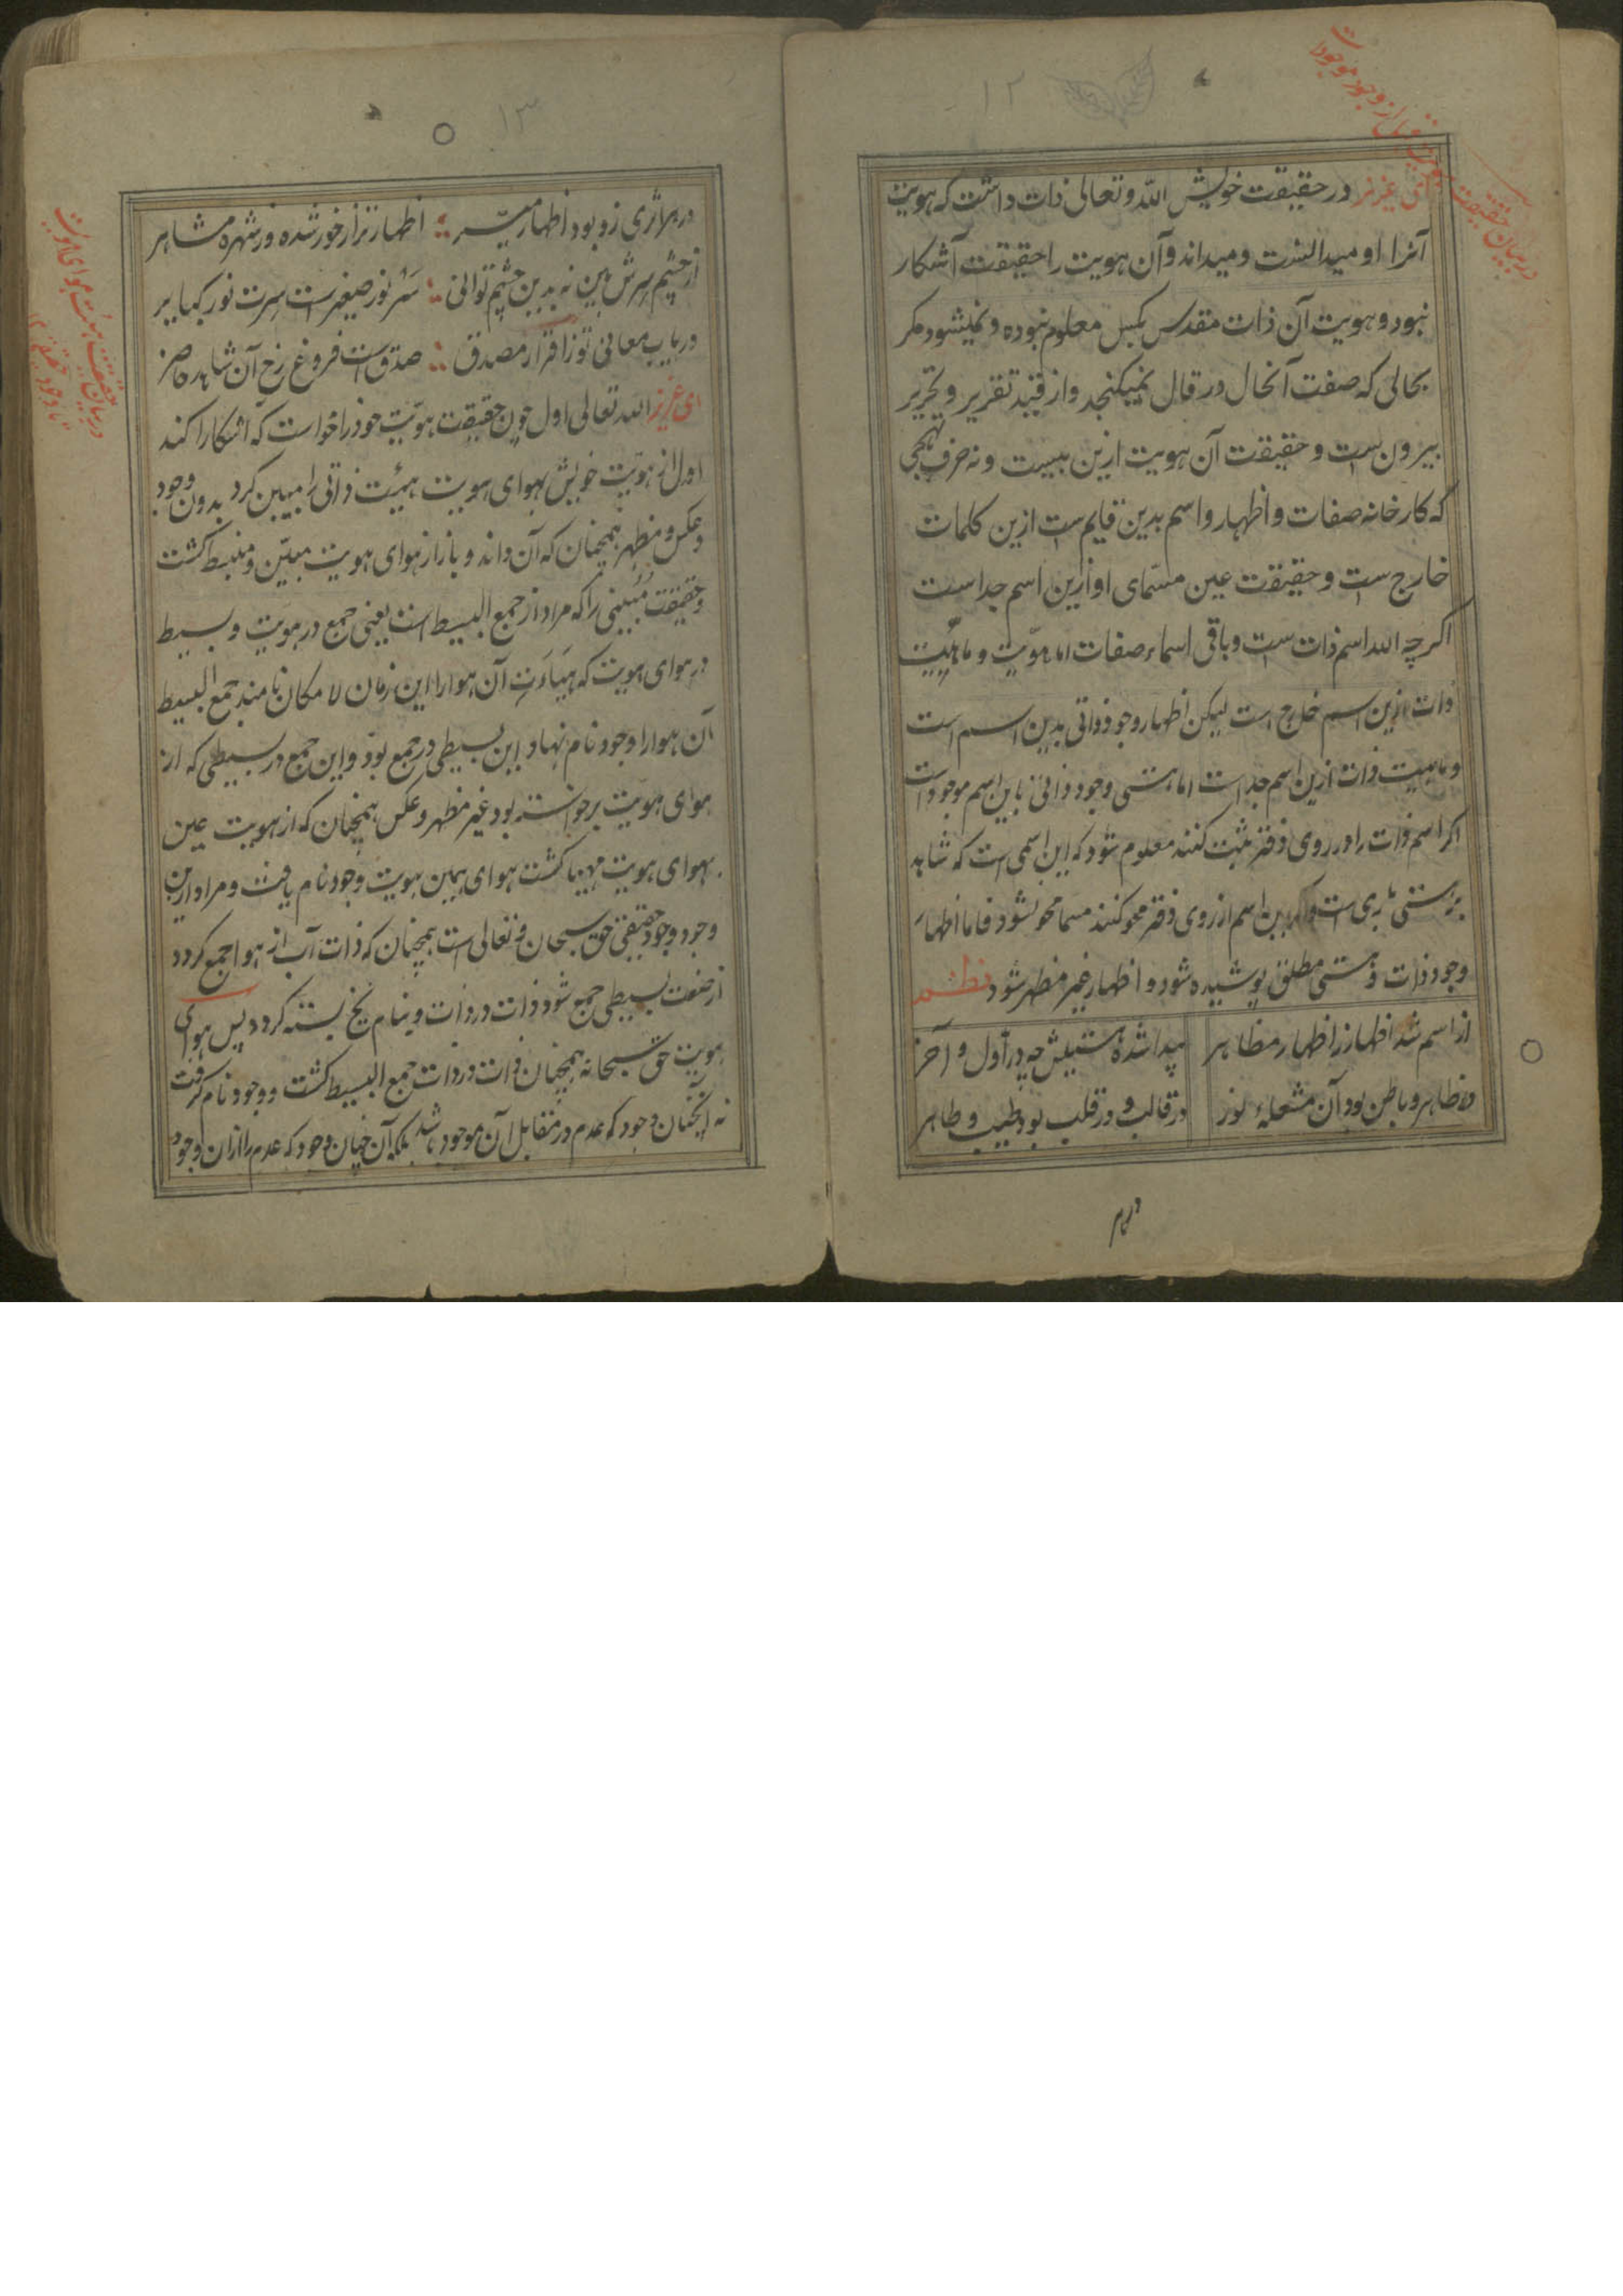 ۱۲
در بیان حقیقت هویت قبل از وجود موجودات
ای عزیز در حقیقت خویش الله و تعالی ذات داشت که هویت
آنرا او میدانست و میداند و آن هویت را حقیقت آشکار
نبود و هویت آن ذات مقدس بکس معلوم نبوده و نمیشود مکر
بحالی که صفت آنحال در قال نمیکنجد و از قید تقریر و تحریر
بیرون ست و حقیقت آن هویت ازین نیست و نه حرف تهجی
که کارخانه صفات و اظهار و اسم بدین قایم ست ازین کلمات
خارج ست و حقیقت عین مسمّای او ازین اسم جدا ست
اکرچه الله اسم ذات ست و باقی اسماء صفات اما هوّیت و ماهیت
ذات ازین اسم خارج است لیکن اظهار وجود ذاتی بدین اسم است
و ماهیت ذات ازین اسم جداست اما هستی وجود ذاتی باین اسم موجود است
اکر اسم ذات را در روی دفتر ثبت کنند معلوم شود که این اسمی است که شاهد
برهستی باری است و اکر این اسم از روی دفتر محو کنند مسما محو نشود فاما اظهار
وجود ذات و هستی مطلق پوشیده شود و اظهار غیر مظهر شود نظم
از اسم شد اظهار ز اظهار مظاهر پیدا شده هستیش چه در اول و آخر
در ظاهر و باطن بود آن مشعلهٔ نور در قالب و در قلب بود طیب و طاهر
در هر
۱۳
در هر اثری زو بود اظهار میسر اظهار تر از خور شده و ر شهره مشاهر
از چشم سرش بین نه بدین چشم توانی سَر نور صغیر است سِرت نور کبایر
دریاب معانی تو ز اقرار مصدق صدق است فروغ رخ آن شاهد حاضر
ای عزیز الله تعالی اول چون حقیقت هوّیت خود را خواست که آشکارا کند
اول از هوّیت خویش بهوای هویت هیئت ذاتی را مبین کرد بدون وجود
و عکس و مظهر همچنان که آن داند و باز از هوای هویت مبیّن و منبسط کشت
و حقیقت مُبینی را که مراد از جمع البسیط است یعنی جمع در هویت و بسیط
در هوای هویت که هیاءت آن هوا را این زمان لا مکان نامند جمع البسیط
آن هوا را وجود نام نهاد و این بسیطی در جمع بود و این جمع در بسیطی که از
هوای هوّیت برخواسته بود غیر مظهر و عکس همچنان که از هویت عین
بهوای هویت مهیا کشت هوای همین هویت وجود نام یافت و مراد ازین
وجود وجود حقیقی حق سبحان و تعالی است همچنان که ذات آب از هوا جمع کردد
از صنعت بسیطی جمع شود ذات در ذات و بنام یخ بسته کردد پس هوای
هویت حق سبحانه همچنان ذات در ذات جمع البسیط کشت و وجود نام کرفت
نه آنچنان وجود که عدم در مقابل آن موجود باشد بلکه آن چنان وجود که عدم را از ان وجود
در بیان حقیقت هیئت هوای هویت
با وجود حقیقی